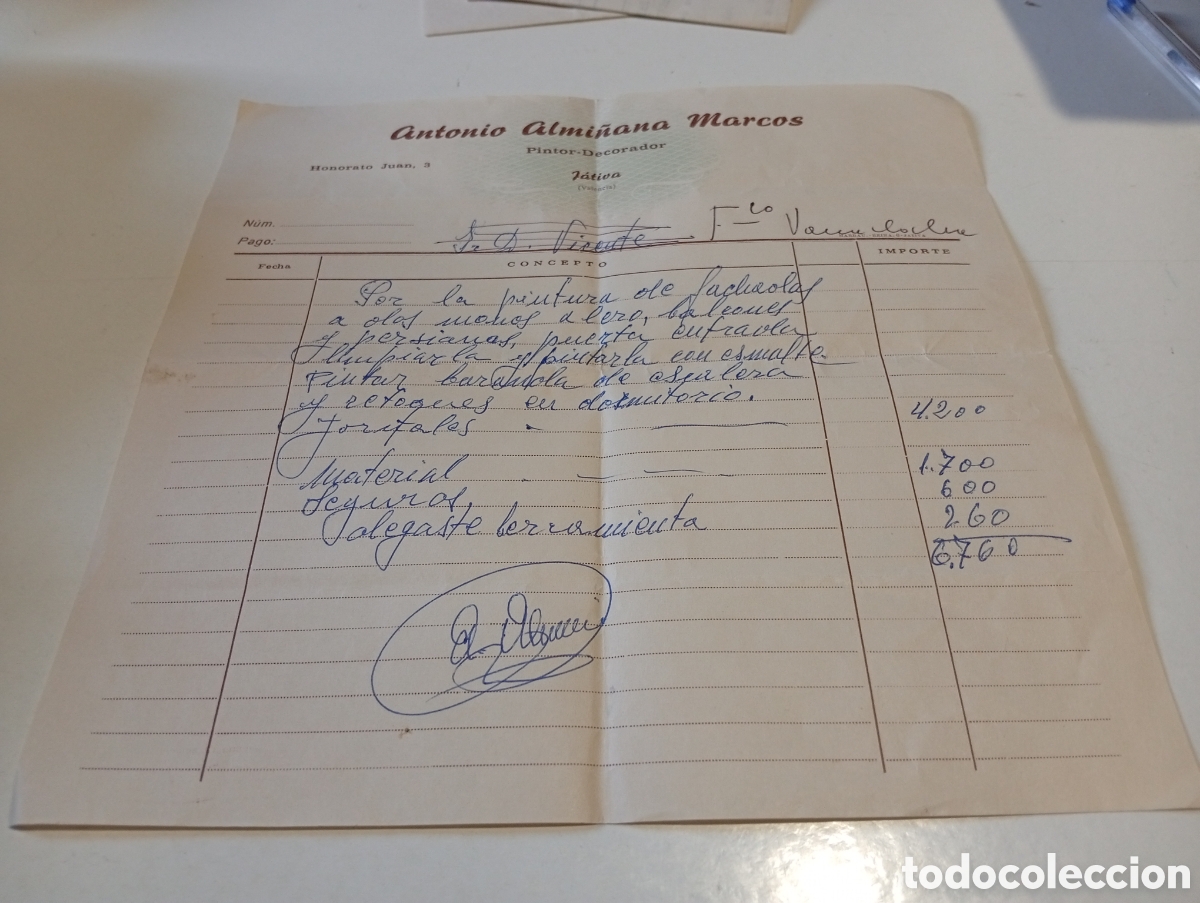 Antonio Almiñana Marcos
Pintor-Decorador
Honorato Juan, 3
Játiva
(Valencia)
Núm.
Pago:
Sr. D. Vicente Fco
Fecha CONCEPTO IMPORTE
Por la pintura de fachadas
a dos manos alero, balcones
y persianas, puerta entrada
limpiarla y pintarla con esmalte
Pintar baranda de escalera
y retoques en dormitorio.
Jornales 4.200
Material 1.700
Seguros 600
herramienta 260
6.760
todocoleccion